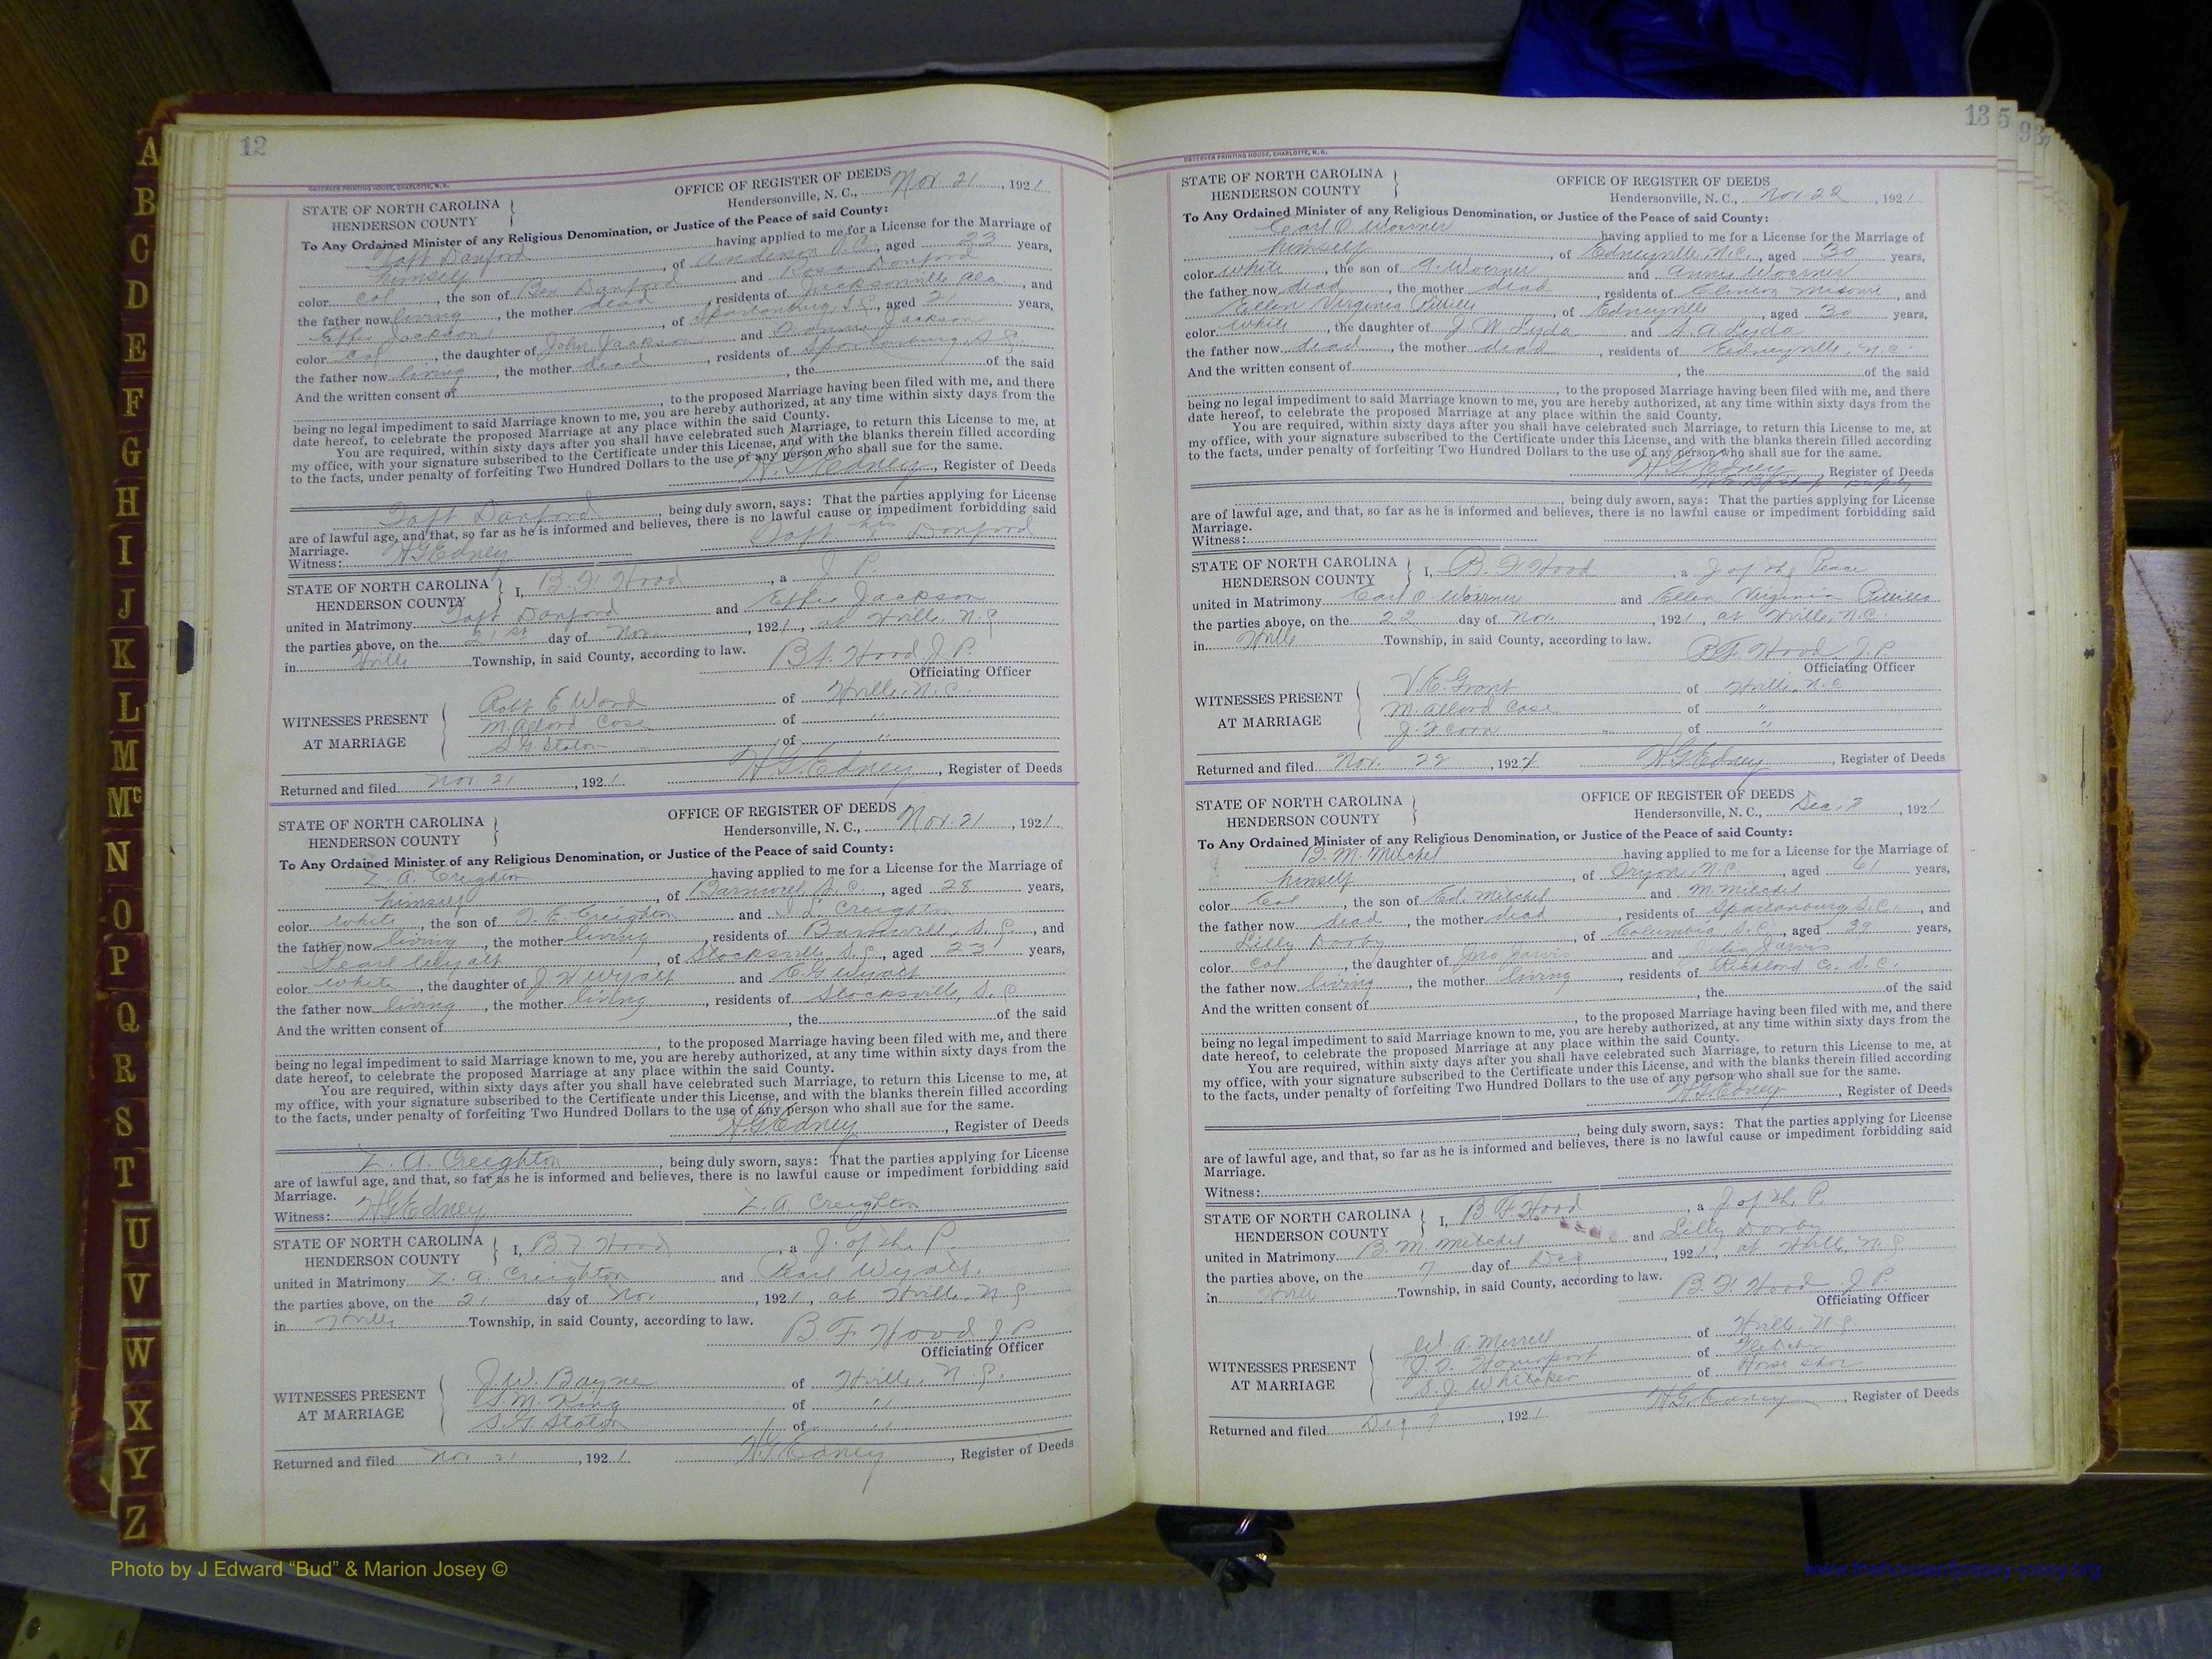 A
B
C
D
E
F
G
H
I
J
K
L
M
Mc
N
O
P
Q
R
S
T
U
V
W
X
Y
Z
12
OBSERVER PRINTING HOUSE, CHARLOTTE, N. C.
STATE OF NORTH CAROLINA
HENDERSON COUNTY
OFFICE OF REGISTER OF DEEDS
Hendersonville, N. C., Nov. 21, 1921
To Any Ordained Minister of any Religious Denomination, or Justice of the Peace of said County:
Taft Danford having applied to me for a License for the Marriage of
himself, of S.C., aged 23 years,
color col, the son of Ben Danford and Rosa Danford
the father now living, the mother dead, residents of Jacksonville, and
Effie Jackson, of Spartanburg, S.C., aged 21 years,
color col, the daughter of John Jackson and Jackson
the father now living, the mother dead, residents of Spartanburg, S.C.
And the written consent of, the of the said
, to the proposed Marriage having been filed with me, and there
being no legal impediment to said Marriage known to me, you are hereby authorized, at any time within sixty days from the
date hereof, to celebrate the proposed Marriage at any place within the said County.
You are required, within sixty days after you shall have celebrated such Marriage, to return this License to me, at
my office, with your signature subscribed to the Certificate under this License, and with the blanks therein filled according
to the facts, under penalty of forfeiting Two Hundred Dollars to the use of any person who shall sue for the same.
H. G. Edney, Register of Deeds
Taft Danford, being duly sworn, says: That the parties applying for License
are of lawful age, and that, so far as he is informed and believes, there is no lawful cause or impediment forbidding said
Marriage.
Taft his Danford
Witness: H G Edney
STATE OF NORTH CAROLINA
HENDERSON COUNTY
I, B. F. Hood, a J. P.
united in Matrimony Taft Danford and Effie Jackson
the parties above, on the 21st day of Nov., 1921, at Hville, N.C.
in Hville Township, in said County, according to law.
B F. Hood J. P.
Officiating Officer
WITNESSES PRESENT
AT MARRIAGE
Robt E Ward of Hville, N.C.
M. Allard Case of "
S. G. Staton of "
Returned and filed Nov 21, 1921 H. G. Edney, Register of Deeds
STATE OF NORTH CAROLINA
HENDERSON COUNTY
OFFICE OF REGISTER OF DEEDS
Hendersonville, N. C., Nov. 21, 1921
To Any Ordained Minister of any Religious Denomination, or Justice of the Peace of said County:
Z. A. Creighton having applied to me for a License for the Marriage of
himself, of Barnwell, S.C., aged 28 years,
color white, the son of Creighton and Creighton
the father now living, the mother living, residents of Barnwell, S.C., and
Pearl Wyatt, of Stocksville, S.C., aged 23 years,
color white, the daughter of J. H Wyatt and Wyatt
the father now living, the mother living, residents of Stocksville, S.C.
And the written consent of, the of the said
, to the proposed Marriage having been filed with me, and there
being no legal impediment to said Marriage known to me, you are hereby authorized, at any time within sixty days from the
date hereof, to celebrate the proposed Marriage at any place within the said County.
You are required, within sixty days after you shall have celebrated such Marriage, to return this License to me, at
my office, with your signature subscribed to the Certificate under this License, and with the blanks therein filled according
to the facts, under penalty of forfeiting Two Hundred Dollars to the use of any person who shall sue for the same.
H G Edney, Register of Deeds
Z. A. Creighton, being duly sworn, says: That the parties applying for License
are of lawful age, and that, so far as he is informed and believes, there is no lawful cause or impediment forbidding said
Marriage.
Witness: H G Edney Z. A. Creighton
STATE OF NORTH CAROLINA
HENDERSON COUNTY
I, B. F. Hood, a J. of the P.
united in Matrimony Z. A. Creighton and Pearl Wyatt
the parties above, on the 21 day of Nov, 1921, at Hville, N.C.
in Hville Township, in said County, according to law.
B. F. Hood J. P
Officiating Officer
WITNESSES PRESENT
AT MARRIAGE
J. W. Bayne of Hville, N.C.
S. M. King of "
S. G. Staton of "
Returned and filed Nov 21, 1921 H G Edney, Register of Deeds
13
OBSERVER PRINTING HOUSE, CHARLOTTE, N. C.
STATE OF NORTH CAROLINA
HENDERSON COUNTY
OFFICE OF REGISTER OF DEEDS
Hendersonville, N. C., Nov 22, 1921
To Any Ordained Minister of any Religious Denomination, or Justice of the Peace of said County:
Carl O. Woerner having applied to me for a License for the Marriage of
himself, of Edneyville, N.C., aged 30 years,
color white, the son of A. Woerner and Annie Woerner
the father now dead, the mother dead, residents of Clinton Missouri, and
Ellen Virginia, of Edneyville, aged 30 years,
color White, the daughter of J. W. Lyda and S. A Lyda
the father now dead, the mother dead, residents of Edneyville, N.C.
And the written consent of, the of the said
, to the proposed Marriage having been filed with me, and there
being no legal impediment to said Marriage known to me, you are hereby authorized, at any time within sixty days from the
date hereof, to celebrate the proposed Marriage at any place within the said County.
You are required, within sixty days after you shall have celebrated such Marriage, to return this License to me, at
my office, with your signature subscribed to the Certificate under this License, and with the blanks therein filled according
to the facts, under penalty of forfeiting Two Hundred Dollars to the use of any person who shall sue for the same.
H G Edney, Register of Deeds
, being duly sworn, says: That the parties applying for License
are of lawful age, and that, so far as he is informed and believes, there is no lawful cause or impediment forbidding said
Marriage.
Witness:
STATE OF NORTH CAROLINA
HENDERSON COUNTY
I, B. F. Hood, a J of the Peace
united in Matrimony Carl O. Woerner and Ellen Virginia
the parties above, on the 22 day of Nov., 1921, at Hville, N.C.
in Hville Township, in said County, according to law.
B. F. Hood, J. P.
Officiating Officer
WITNESSES PRESENT
AT MARRIAGE
V. E. Grant of Hville, N.C
M. Allard Case of "
J. F. Coon of "
Returned and filed Nov. 22, 1921 H G Edney, Register of Deeds
STATE OF NORTH CAROLINA
HENDERSON COUNTY
OFFICE OF REGISTER OF DEEDS
Hendersonville, N. C., Dec. 7, 1921
To Any Ordained Minister of any Religious Denomination, or Justice of the Peace of said County:
B. M. Mitchel having applied to me for a License for the Marriage of
himself, of Tryon, N.C., aged 61 years,
color Col, the son of Ed. Mitchel and M. Mitchel
the father now dead, the mother dead, residents of Spartanburg S.C., and
Lilly Darby, of Columbia, S.C., aged 39 years,
color Col, the daughter of Jno Jarvis and Jarvis
the father now living, the mother living, residents of Richland Co. S.C.
And the written consent of, the of the said
, to the proposed Marriage having been filed with me, and there
being no legal impediment to said Marriage known to me, you are hereby authorized, at any time within sixty days from the
date hereof, to celebrate the proposed Marriage at any place within the said County.
You are required, within sixty days after you shall have celebrated such Marriage, to return this License to me, at
my office, with your signature subscribed to the Certificate under this License, and with the blanks therein filled according
to the facts, under penalty of forfeiting Two Hundred Dollars to the use of any person who shall sue for the same.
H G. Edney, Register of Deeds
, being duly sworn, says: That the parties applying for License
are of lawful age, and that, so far as he is informed and believes, there is no lawful cause or impediment forbidding said
Marriage.
Witness:
STATE OF NORTH CAROLINA
HENDERSON COUNTY
I, B F Hood, a J. of the P.
united in Matrimony B. M. Mitchel and Lilly Darby
the parties above, on the 7 day of Dec, 1921, at Hville, N.C.
in Hville Township, in said County, according to law.
B. F. Hood J. P.
Officiating Officer
WITNESSES PRESENT
AT MARRIAGE
W. A. Merrell of Hville, N.C.
Davenport of Fletcher
S. J. Whitaker of Horse Shoe
Returned and filed Dec 7, 1921 H G. Edney, Register of Deeds
Photo by J Edward “Bud” & Marion Josey ©
www.thehouseofjossey-josey.org